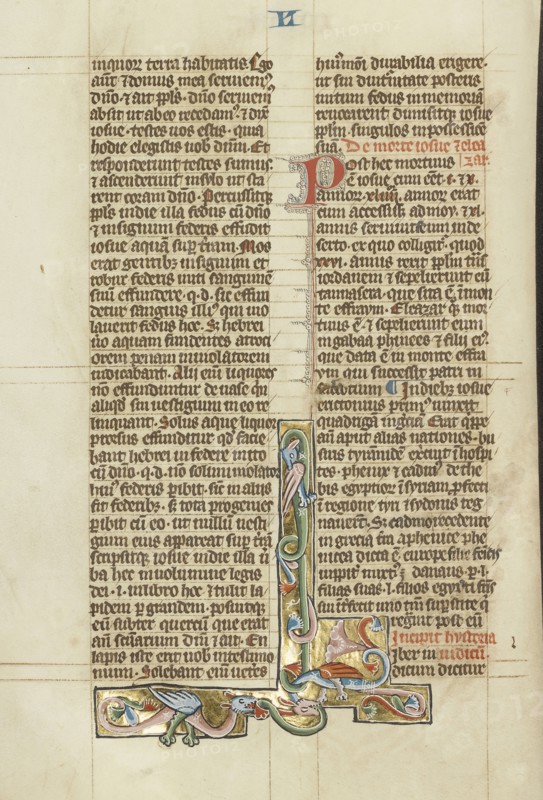 N
inquor terra habitatis. Ego
aut̄ ⁊ domus mea seruiemꝰ
dn̄o. ⁊ ait ppl̄s. dn̄o seruiemꝰ
absit ut ab eo recedamꝰ. ⁊ dix̄
iosue. testes uos estis. quia
hodie elegistis uob̄ dn̄m. Et
responderunt testes sumus.
⁊ ascenderunt in sylo ut sta
rent coram dn̄o. Percussitqꝫ
ppl̄s indie illa fedus cū dn̄o
⁊ in signum federis effudit
iosue aquam suꝑ t̄ram. Mos
erat gentibꝫ in signum et
robur federis uniti sanguinē
suū effundere. q. d. sic effun
detur sanguis illiꝰ qui uio
lauerit fedus hoc. Si hebrei
u̇o aquam fundentes atroci
orem penam in uiolatorem
iudicabant. Alii eni liquores
nō effunduntur de uase qn̄
aliqđ sui uestigium in eo re
linquant. Solus aque liquor
prorsus effunditur qđ facie
bant hebrei in federe inito
cū dn̄o. q. d. nō solū uiolator
huiꝰ federis ꝑibit. sic in aliis
sit federibꝫ. s; tota progenies
ꝑibit cū eo. ut nullū uesti
gium eius appareat suꝑ t̄rā
scripsitqꝫ iosue indie illa u̇
ba hec in uolumine legis
dei. i. in libro hoc ⁊ tulit la
pidem ꝑ grandem. posuitqꝫ
eū subter quercū que erat
an̄ sc̄uarium dn̄i ⁊ ait. En
lapis iste erit uob̄ in testimo
nium. Solebant eni ueteres
huiꝰmōi durabilia erigere.
ut sui diut̄nitate posteris
initum fedus in memoriā
reuocarent dimisitqꝫ iosue
ppl̄m. singulos in possessiōē
suā. De morte iosue ⁊ elea
Post hec mortuus zar.
ē iosue cum eēt. c. ⁊ x.
annor. xliiii. annor erat
cum accessisset ad moy. ⁊ xl.
annis seruiuit eum inde
serto. ex quo colligit̄. quod
xxvi. annis rexit ppl̄m tn̄s
iordanem ⁊ sepelierunt eū
tamnasera. que sita ē ī mon
te effraym. Eleazar qꝫ mor
tuus ē. ⁊ sepelierunt eum
in gabaa phinees ⁊ filii eiꝰ.
que data ē in monte effra
ym qui successit patri in
sacerdotium ¶ In diebꝫ iosue
erictonius primꝰ iunxit
quadrigā in grecia. Erat qꝑpe
an̄ aput alias nationes. bu
siris tyrānidē exercuit ī hospi
tes. phenix ⁊ cadmꝰ de the
bis egyptior ī syriam ꝓfecti
ī regione tyri ⁊ sydonis reg
nauert̄. S; cadmo recedente
in grecia tn̄ a phenice phe
nicea dicta ē. europe filie fenicis
iuppit̄ mixtꝰ ē. danaus ꝑ. l.
filias suas. l. filios egypti fr̄is
sui īt̄fecit uno tm̄ suꝑstite q̇
regnuit post eū
Incipit hystoria
Liber in iudicū.
dictum dicitur